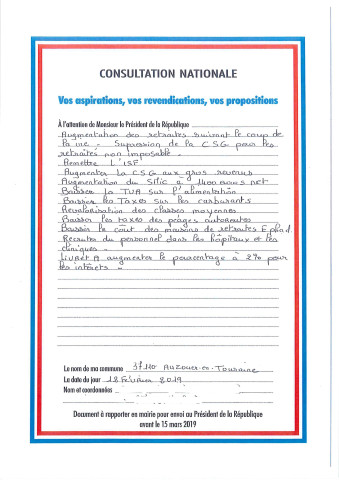 CONSULTATION NATIONALE
Vos aspirations, vos revendications, vos propositions
À l'attention de Monsieur le Président de la République
Augmentation des retraites suivant le coup de
la vie - Supression de la CSG pour les
retraités non imposable -
Remettre L'ISF
Augmenter la CSG aux gros revenus
Augmentation du Smic à 1400 euros net
Baisser la TVA sur l'alimentation
Baisser les Taxes sur les carburants
Revalorisation des classes moyennes
Baisser les taxes des péages autoroutes
Baisser le coût des maisons de retraites Ephad.
Recruter du personnel dans les hôpitaux et les
cliniques -
Livret A augmenter le pourcentage à 2% pour
les intérets -
Le nom de ma commune 37110 Auzouer-en-Touraine
La date du jour 18 Février 2019
Nom et coordonnées
Document à rapporter en mairie pour envoi au Président de la République
avant le 15 mars 2019